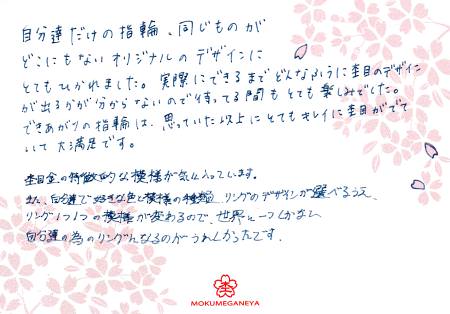 自分達だけの指輪、同じものが
どこにもないオリジナルのデザインに
とてもひかれました。実際にできるまでどんなふうに杢目のデザイン
が出るかが分からないので待ってる間もとても楽しみでした。
できあがりの指輪は、思っていた以上にとてもキレイに杢目がでて
いて大満足です。
杢目金の特徴的な模様が気に入っています。
また、自分達で好きな色と模様の種類、リングのデザインが選べるうえ、
リング1つ1つの模様が変わるので、世界に一つしかない
自分達の為のリングになるのがうれしかったです。
MOKUMEGANEYA